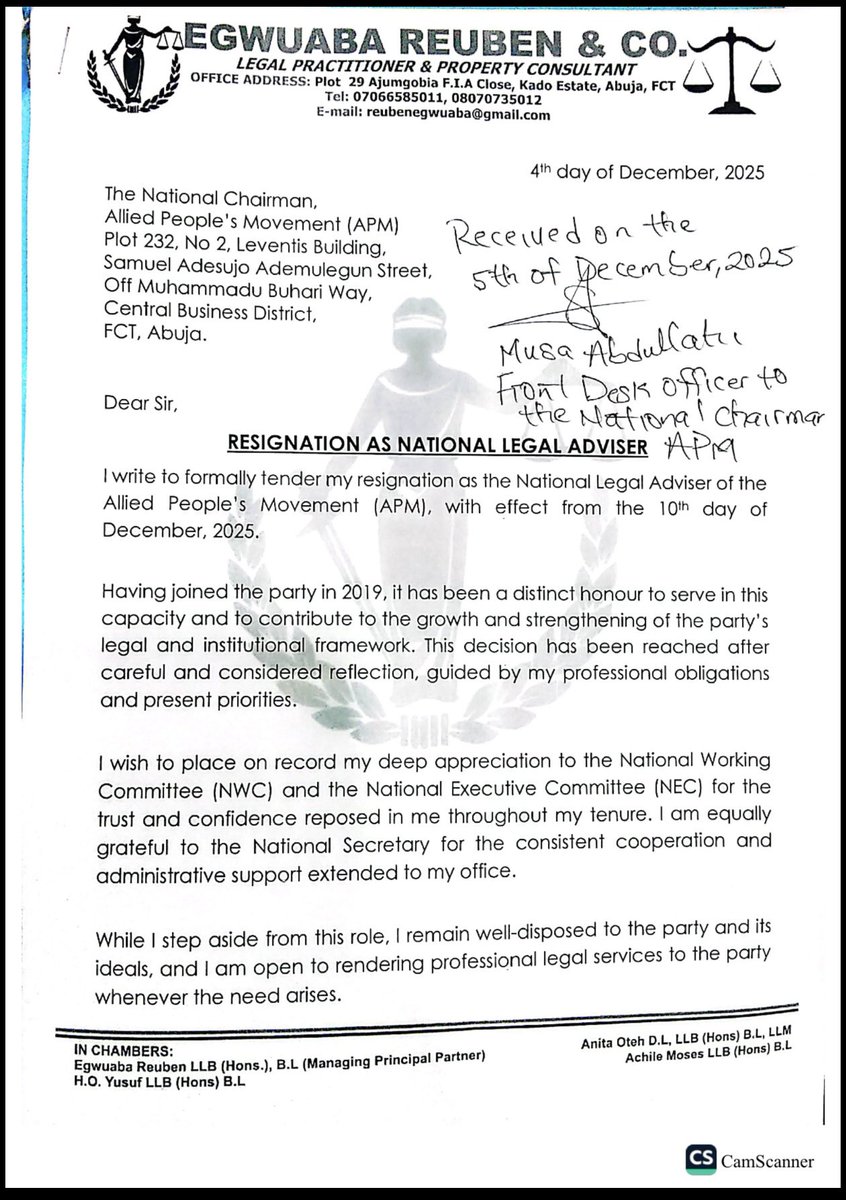 EGWUABA REUBEN & CO.
LEGAL PRACTITIONER & PROPERTY CONSULTANT
OFFICE ADDRESS: Plot 29 Ajumgobia F.I.A Close, Kado Estate, Abuja, FCT
Tel: 07066585011, 08070735012
E-mail: reubenegwuaba@gmail.com
4th day of December, 2025
The National Chairman,
Allied People's Movement (APM)
Plot 232, No 2, Leventis Building,
Samuel Adesujo Ademulegun Street,
Off Muhammadu Buhari Way,
Central Business District,
FCT, Abuja.
Received on the
5th of December, 2025
Musa
Front Desk officer to
the National Chairman
APM
Dear Sir,
RESIGNATION AS NATIONAL LEGAL ADVISER
I write to formally tender my resignation as the National Legal Adviser of the
Allied People's Movement (APM), with effect from the 10th day of
December, 2025.
Having joined the party in 2019, it has been a distinct honour to serve in this
capacity and to contribute to the growth and strengthening of the party's
legal and institutional framework. This decision has been reached after
careful and considered reflection, guided by my professional obligations
and present priorities.
I wish to place on record my deep appreciation to the National Working
Committee (NWC) and the National Executive Committee (NEC) for the
trust and confidence reposed in me throughout my tenure. I am equally
grateful to the National Secretary for the consistent cooperation and
administrative support extended to my office.
While I step aside from this role, I remain well-disposed to the party and its
ideals, and I am open to rendering professional legal services to the party
whenever the need arises.
IN CHAMBERS:
Egwuaba Reuben LLB (Hons.), B.L (Managing Principal Partner)
H.O. Yusuf LLB (Hons) B.L
Anita Oteh D.L, LLB (Hons) B.L, LLM
Achile Moses LLB (Hons) B.L
CS CamScanner